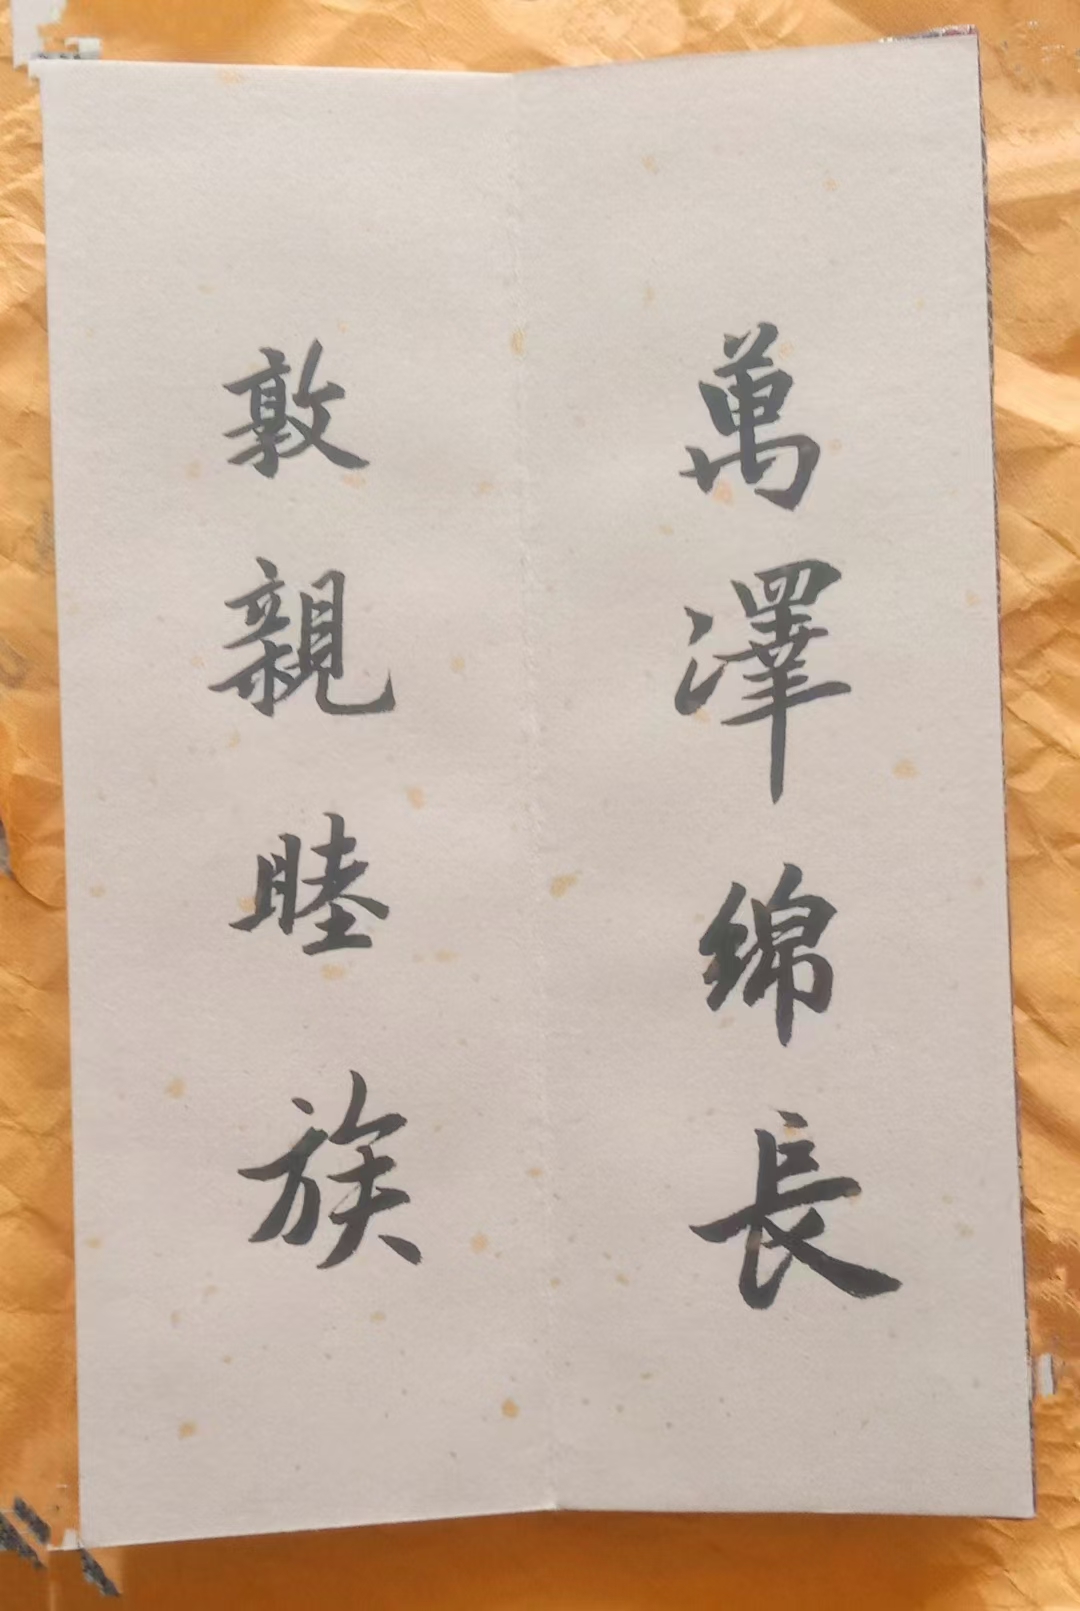 萬澤绵長
敦親睦族